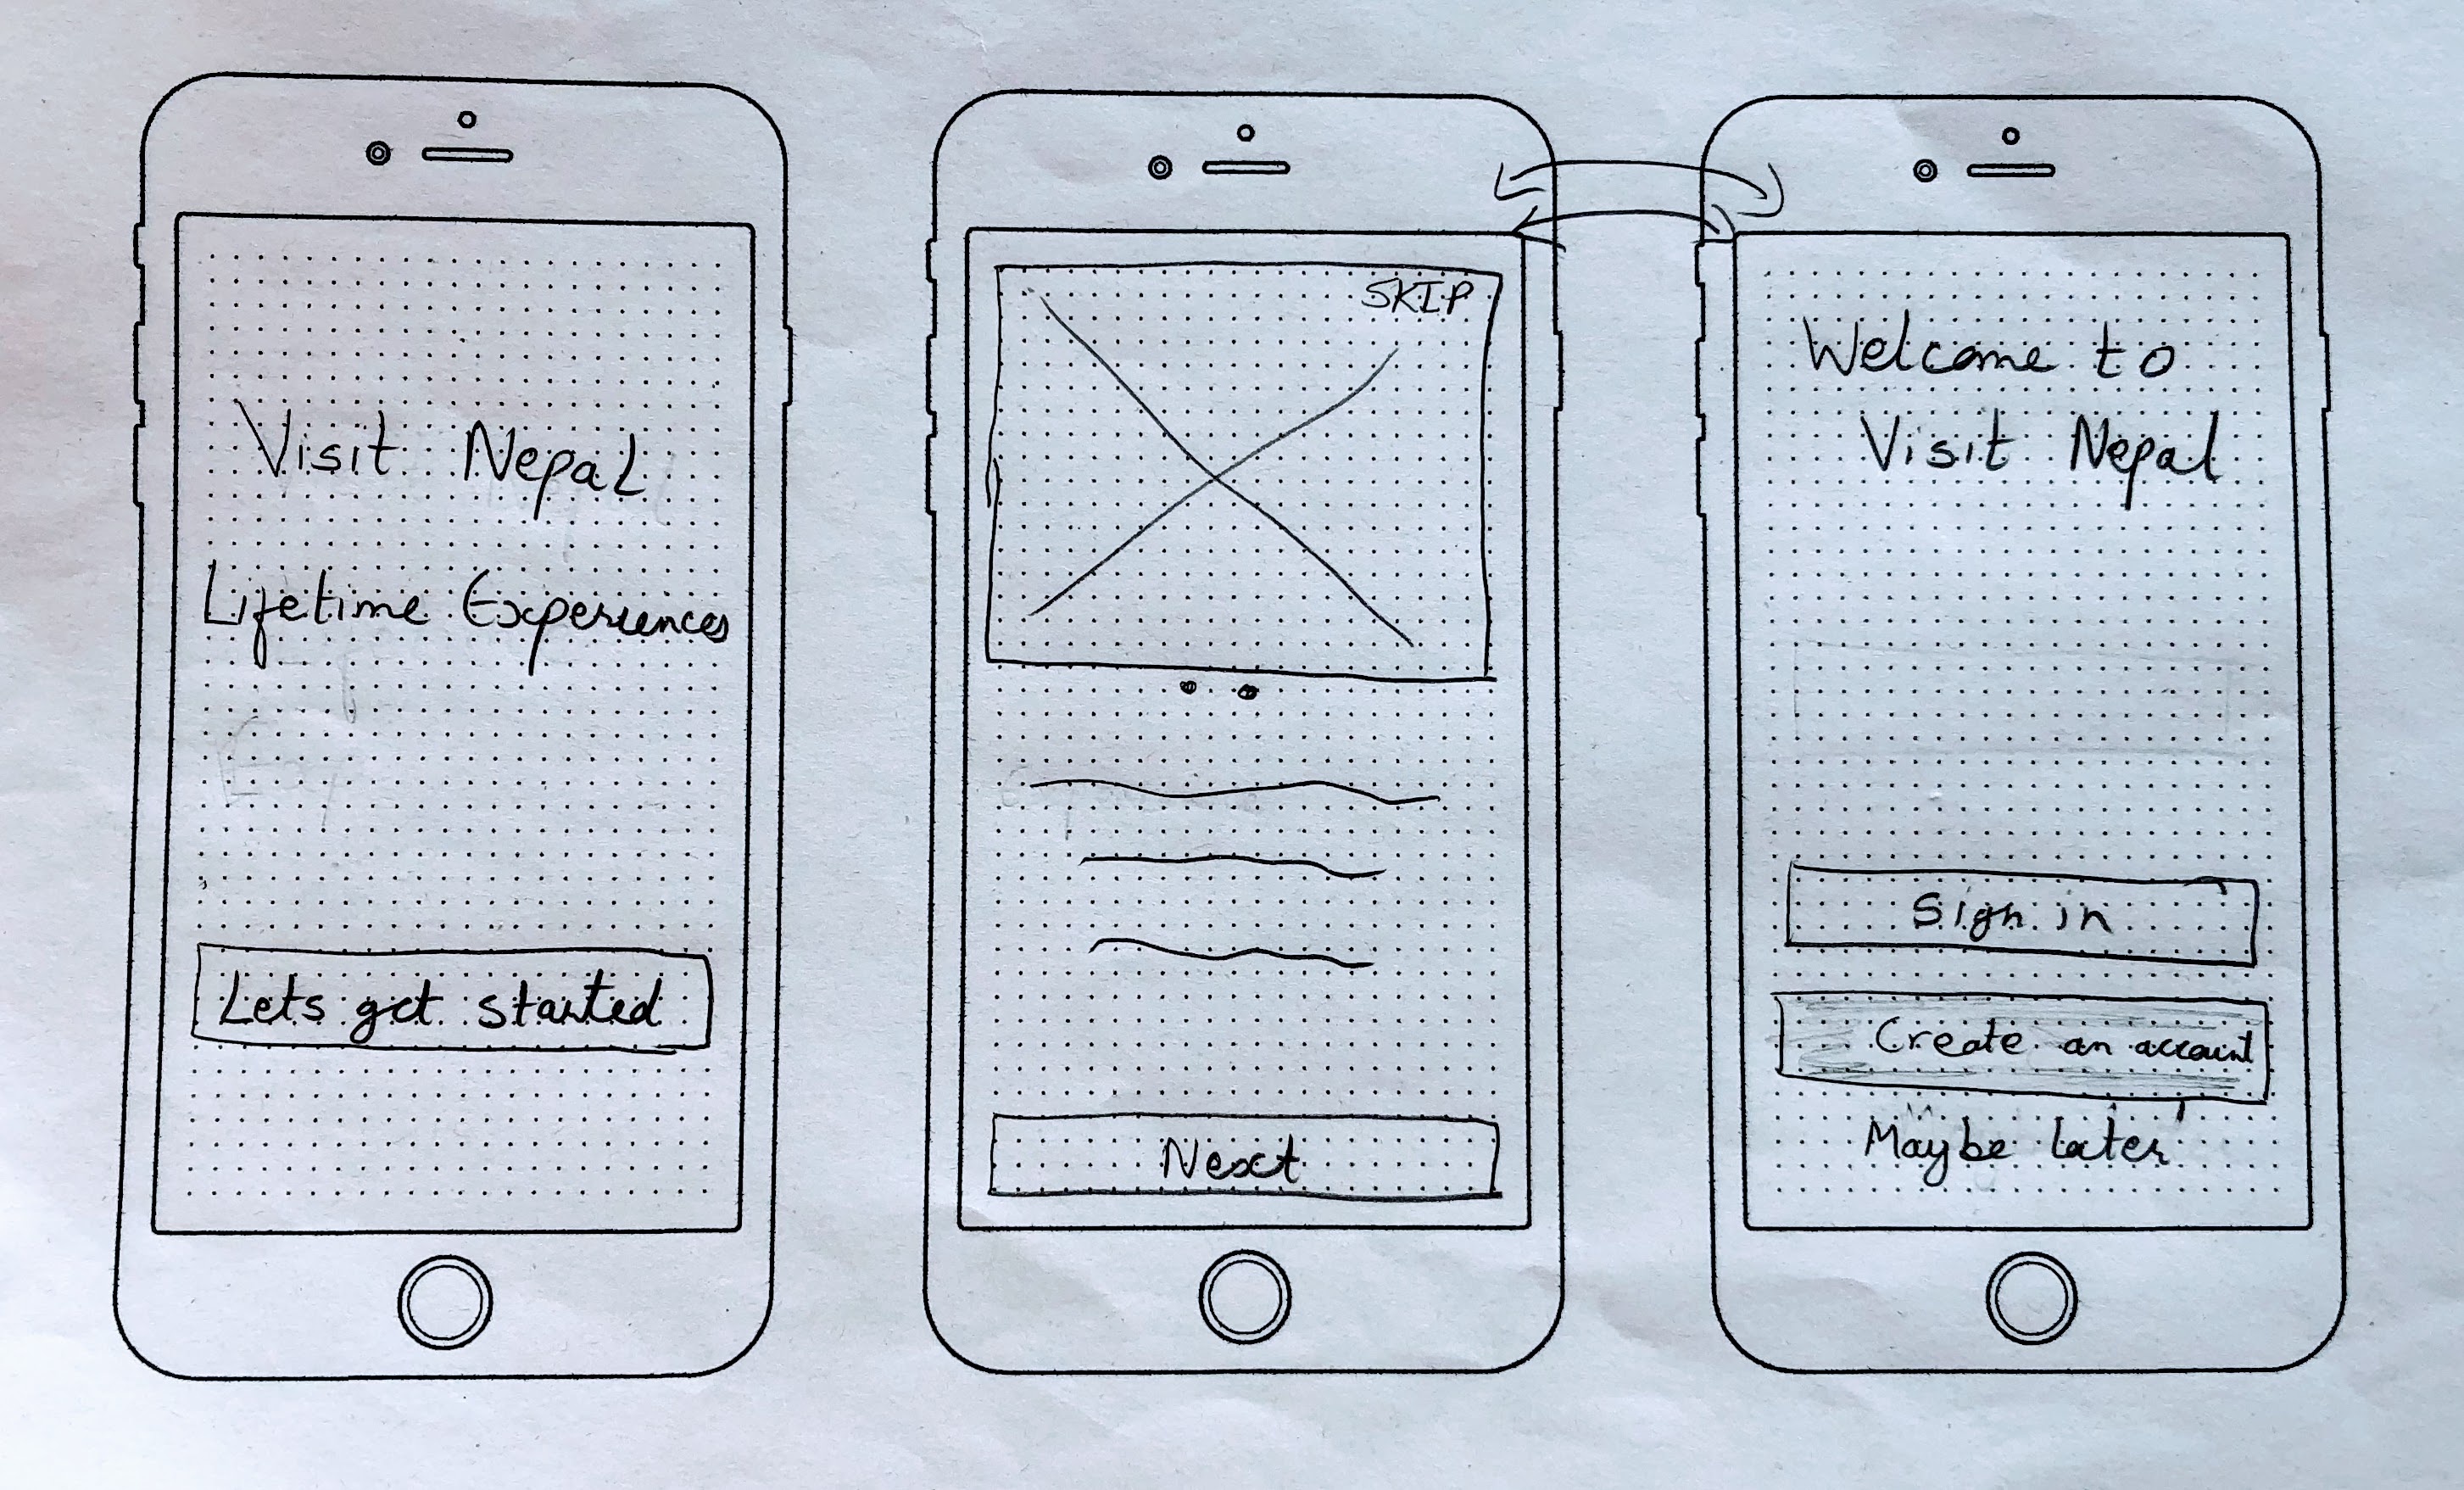 Visit Nepal
Lifetime Experiences
Lets get started
SKIP
Next
Welcome to
Visit Nepal
Sign in
Create an account
Maybe later